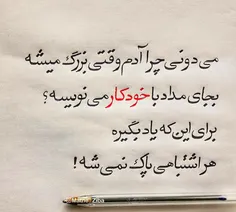 می دونی چرا آدم وقتی بزرگ میشه
بجای مداد با خودکار می نویسه؟
برای این که یاد بگیره
هر اشتباهی پاک نمی شه!